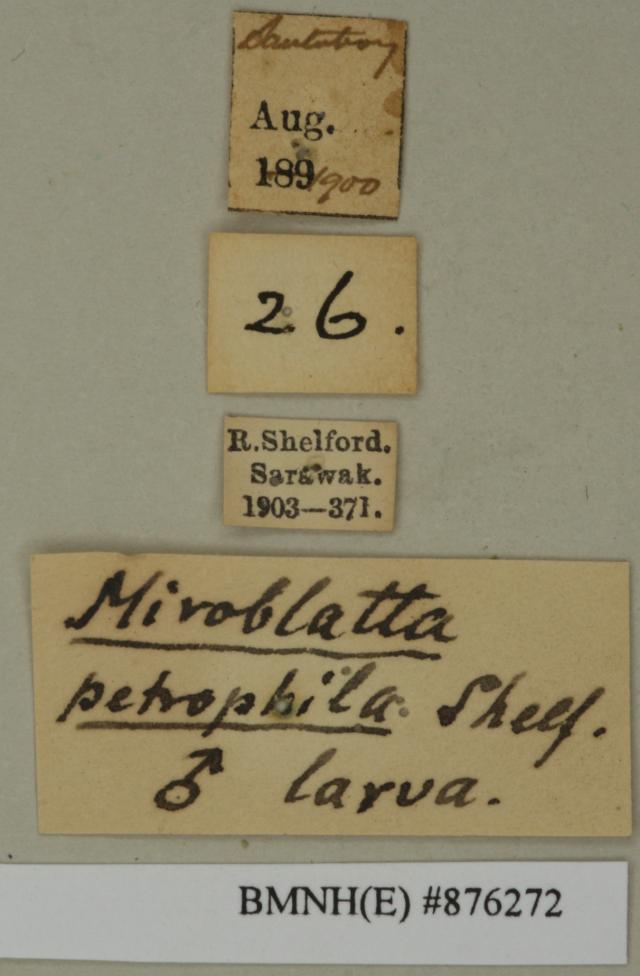 Santubong
Aug.
189 1900
26.
R. Shelford.
Sarawak.
1903—371.
Miroblatta
petrophila. Shelf.
♂ larva.
BMNH(E) #876272